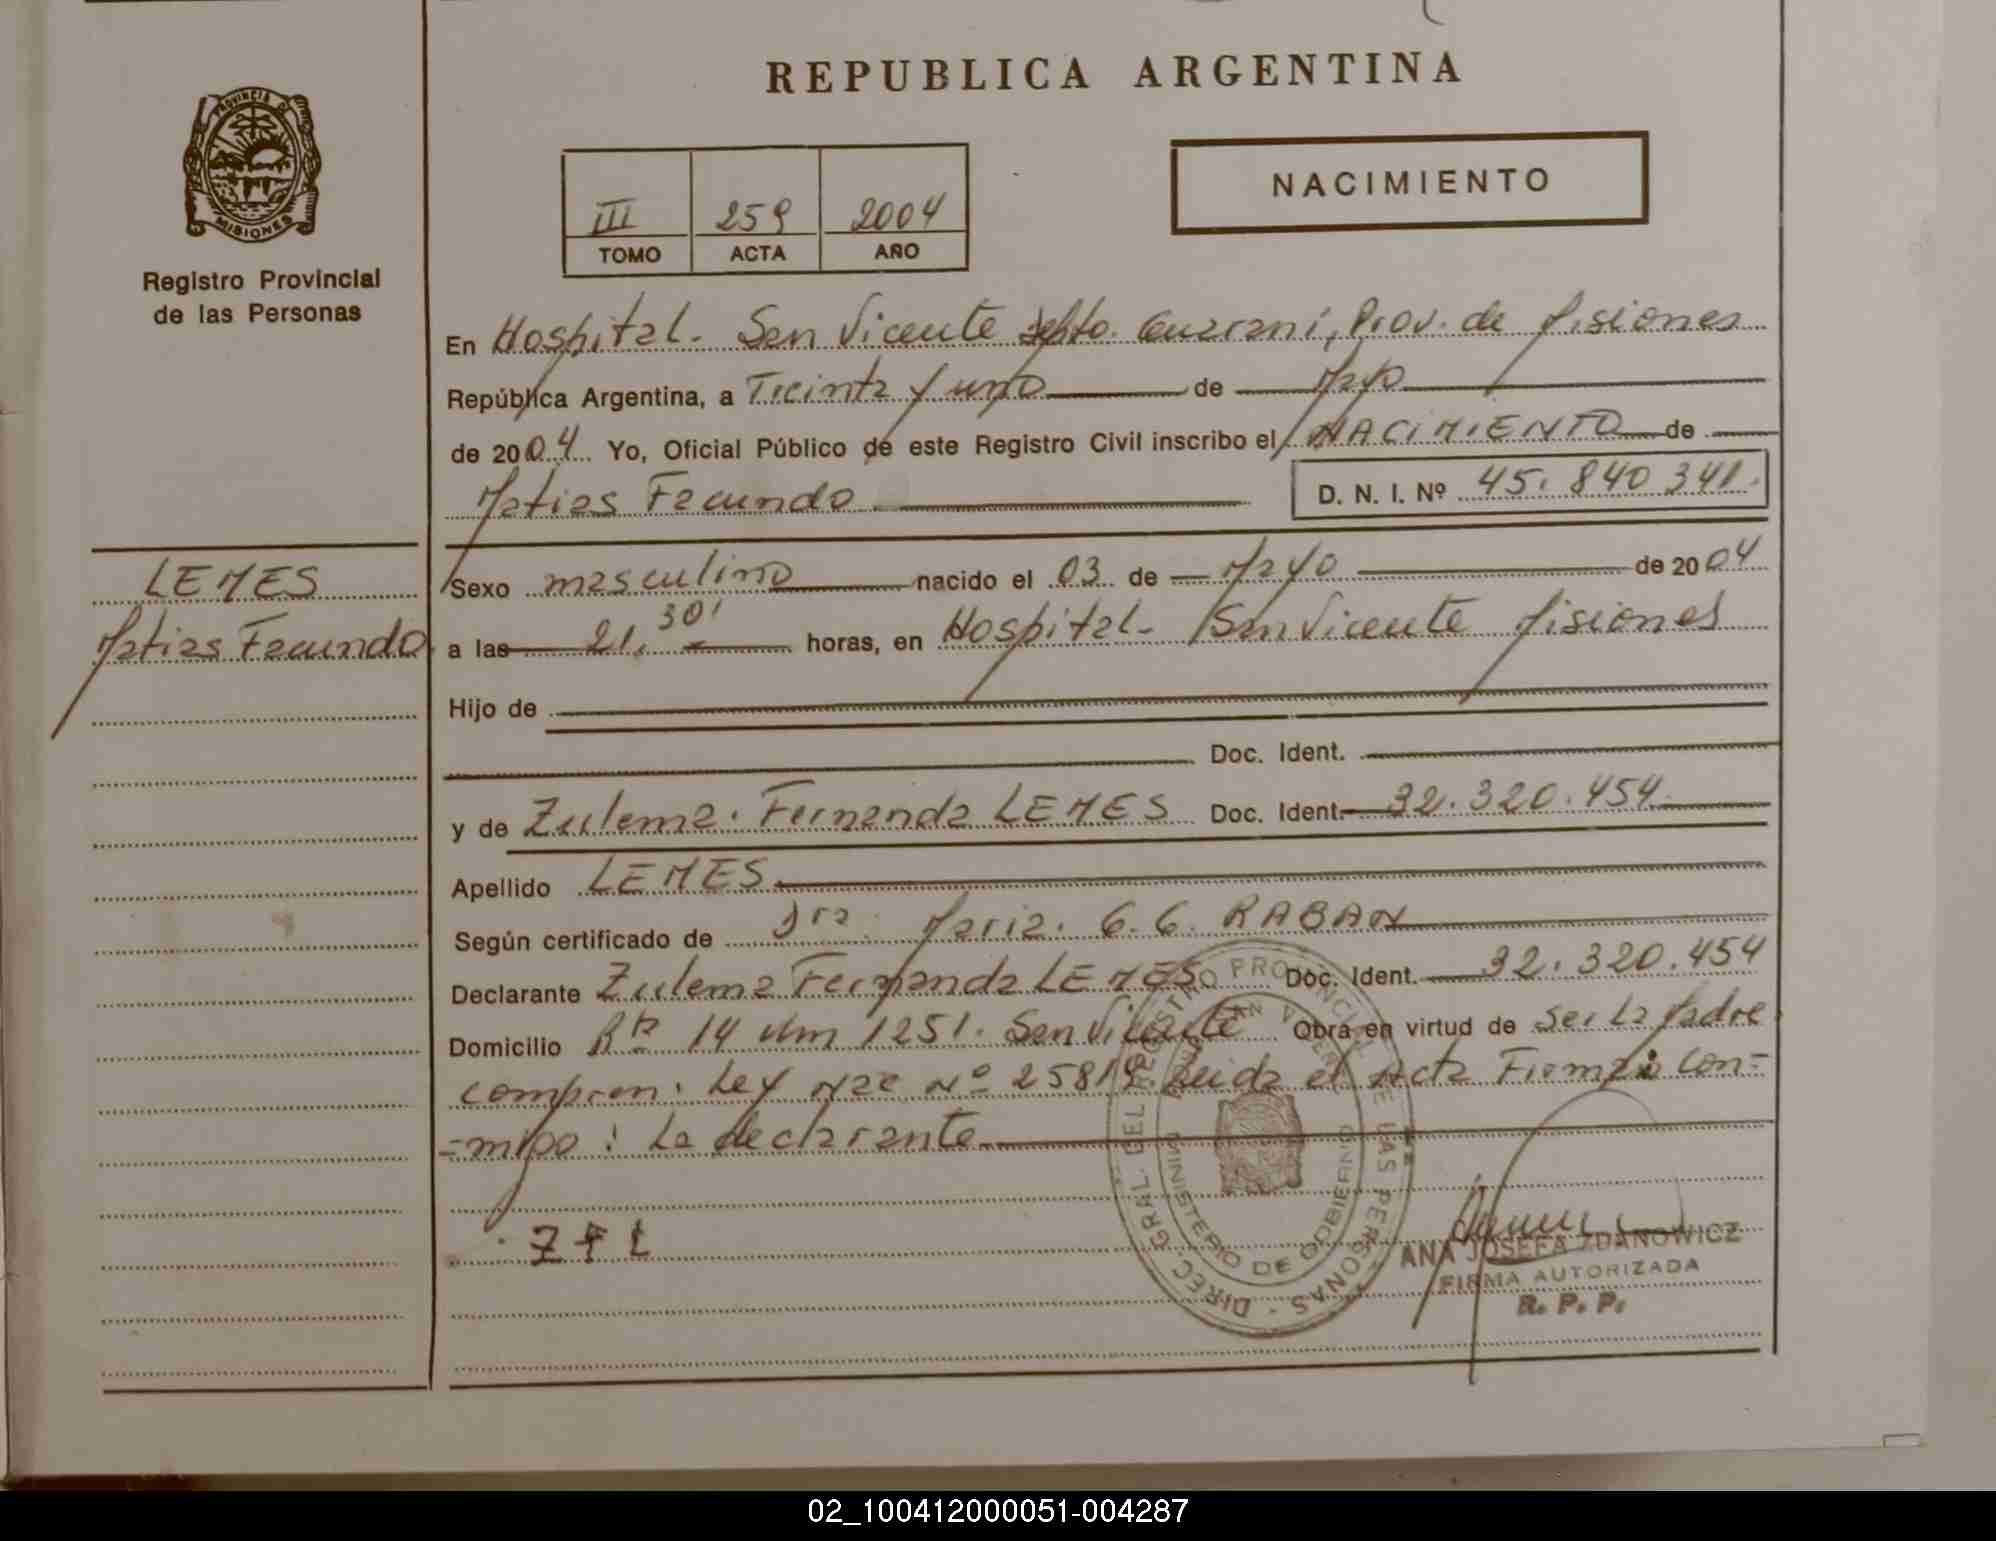 REPUBLICA ARGENTINA
PROVINCIA DE
MISIONES
Registro Provincial
de las Personas
III 259 2004
TOMO ACTA AÑO
NACIMIENTO
En Hospital. San Vicente Depto. Guaraní, Prov. de Misiones
República Argentina, a Treinta y uno de Mayo
de 2004. Yo, Oficial Público de este Registro Civil inscribo el NACIMIENTO de
Matias Facundo D. N. I. Nº 45. 840 341.
LEMES
Matias Facundo
Sexo masculino nacido el 03 de Mayo de 2004
a las 21. 30' horas, en Hospital. San Vicente Misiones
Hijo de
Doc. Ident.
y de Zulema. Fernanda LEMES Doc. Ident. 32.320.454
Apellido LEMES
Según certificado de Dra. Maria. G. G. RABAN
Declarante Zulema Fernanda LEMES Doc. Ident. 32.320.454
Domicilio Rta 14 Km 1251. San Vicente Obra en virtud de Ser La Madre
compren. Ley Nac Nº 25819. Leida el Acta Firma: Con=
=migo: La declarante
Z F L
DIREC. GRAL. DEL REGISTRO PROVINCIAL DE LAS PERSONAS -
MINISTERIO DE GOBIERNO
SAN VICENTE
ANA JOSEFA ZDANOWICZ
FIRMA AUTORIZADA
R. P. P.
02_100412000051-004287